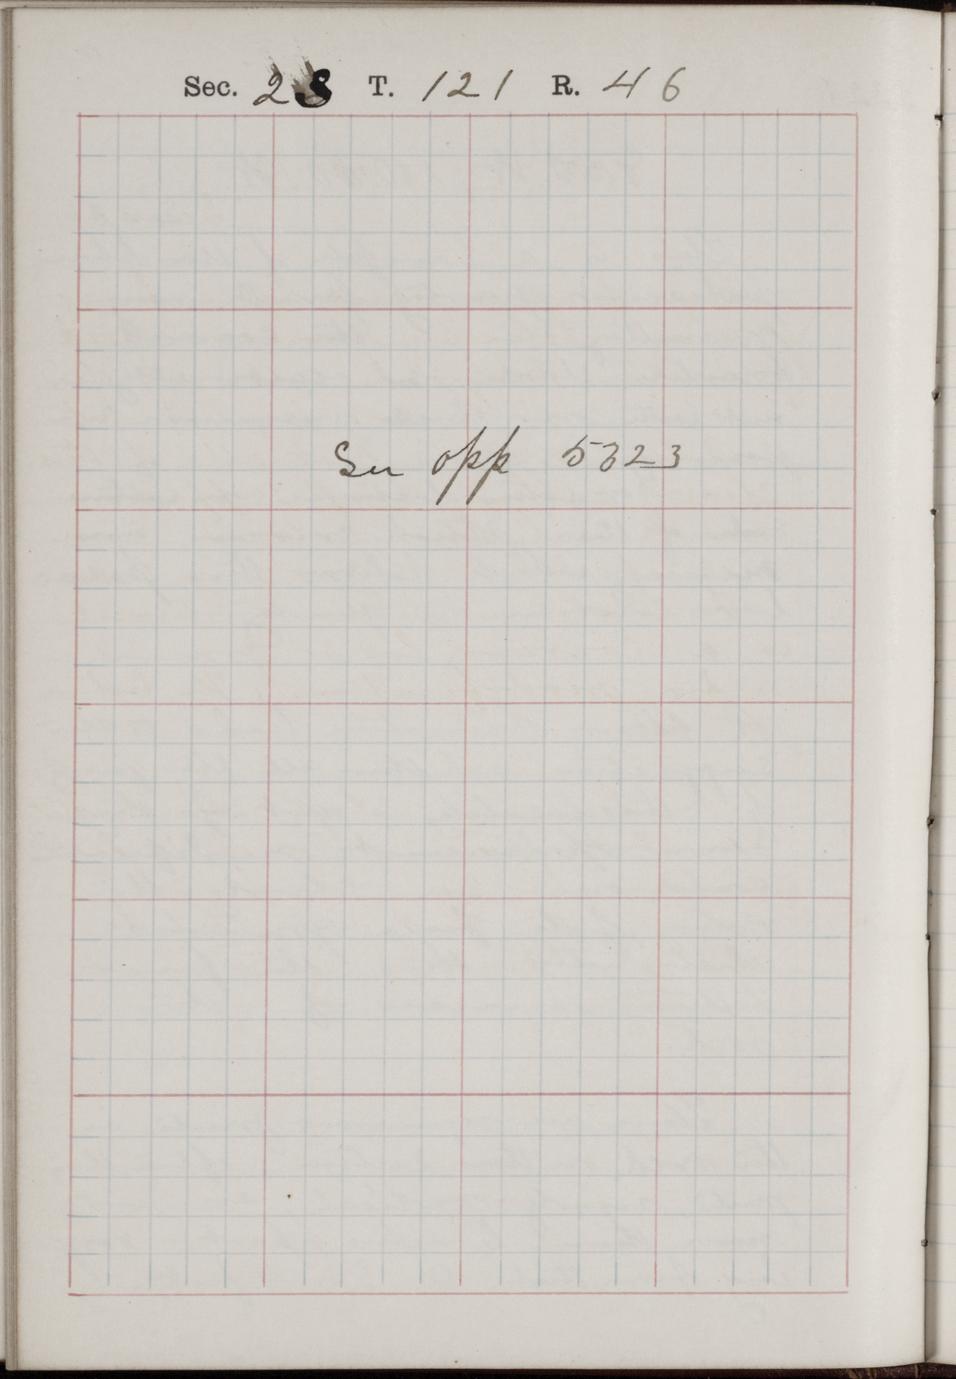 Sec. 28 T. 121 R. 46
See opp 5323